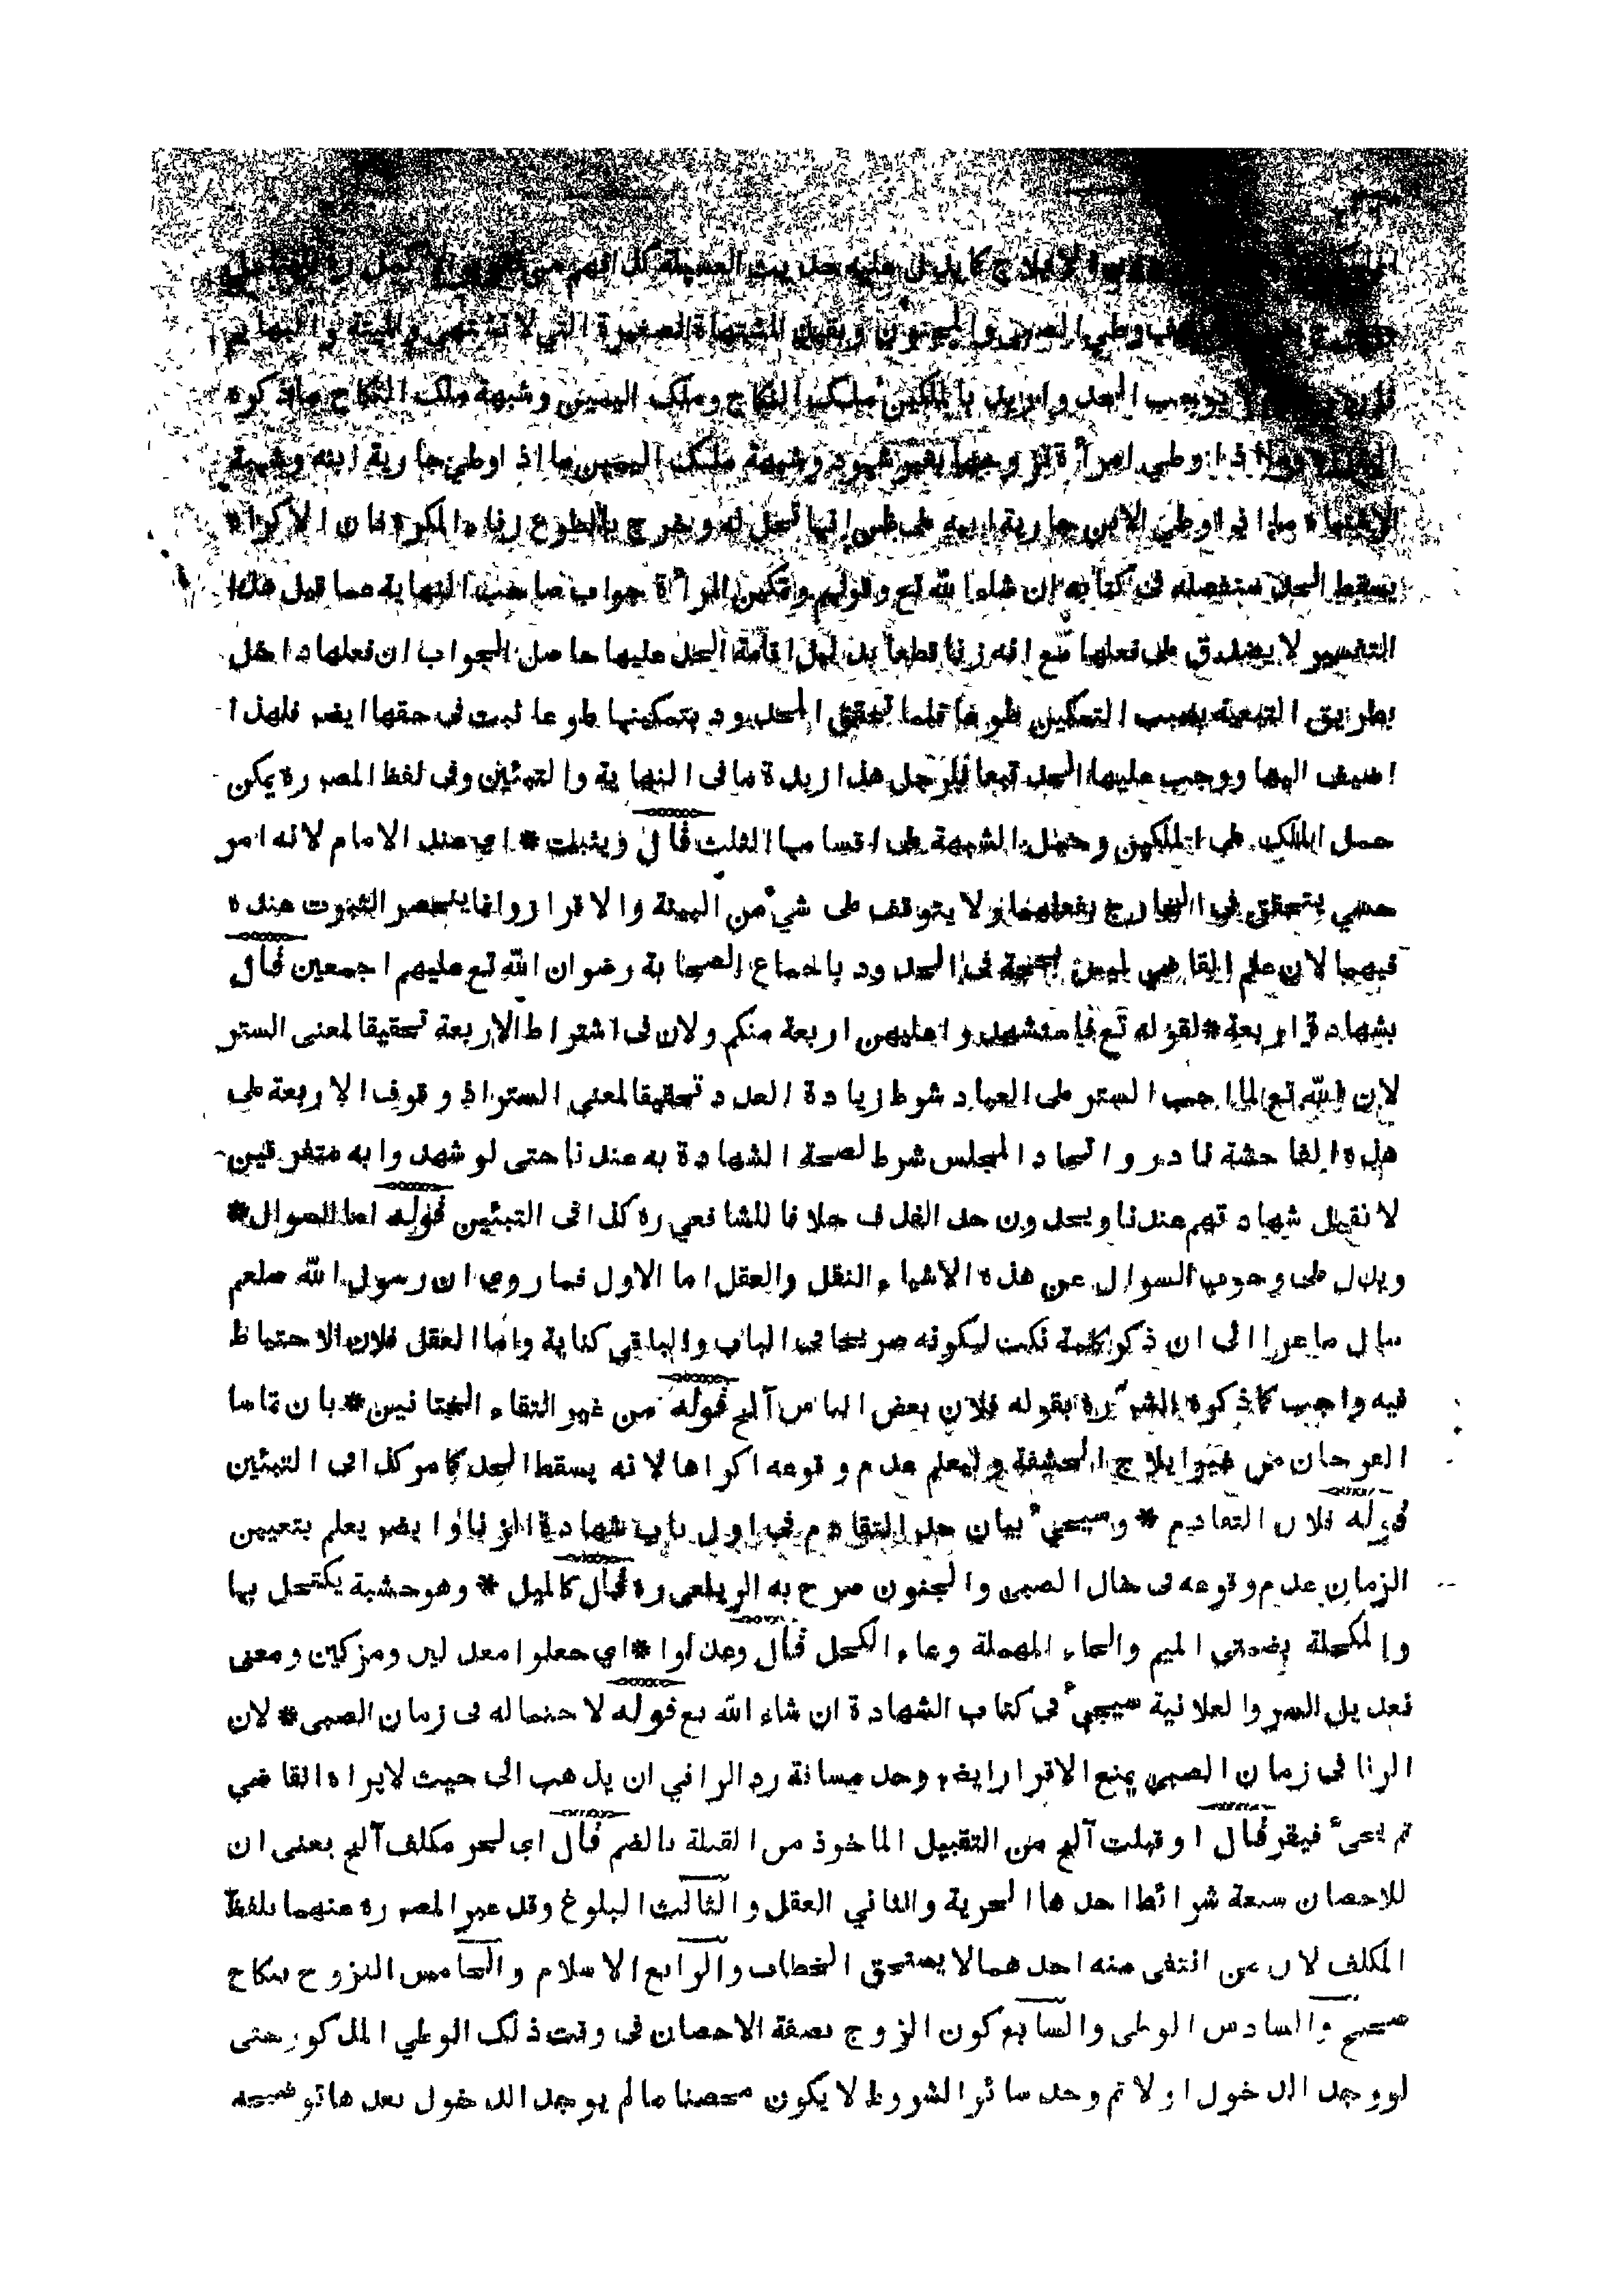 الايلاج كما يدل عليه حديث العسيلة كذا فهم من
وطي الصبي والمجنون وبقيد المشتهاة الصغيرة التي لا تشتهى والميتة والبهائم
يوجب الحد واريد بالملكين ملك النكاح وملك اليمين وشبهة ملك النكاح ما ذكره
اذا وطي امرأة تزوجها بغير شهود وشبهة ملك اليمين ما اذا وطئ جارية ابنه وشبهة
الاشتباه ما اذا وطئ الابن جارية ابيه على ظن انها تحل له وخرج بالطوع زناء المكره فان الاكراه
يسقط الحد ستفصله في كتابه ان شاء الله تع وقوله وتمكين المرأة جواب صاحب النهاية عما قيل هذا
التفسير لا يصدق على فعلها مع انه زنا قطعا بدليل اقامة الحد عليها حاصل الجواب ان فعلها داخل
بطريق التبعية بسبب التمكين طوعا فلما تحقق الحدود بتمكينها طوعا ثبت في حقها ايضر فلهذا
اضيف اليها ووجب عليها الحد تبعا للرجل هذا زبدة ما في النهاية والتبئين وفي لفظ المصر ره يمكن
حمل الملك على الملكين وحمل الشبهة على اقسامها الثلث قال ويثبت * اي عند الامام لانه امر
حسي يتحقق في الخارج بفعلهما ولا يتوقف على شيء من البينة والاقرار وانما ينحصر الثبوت عنده
فيهما لان علم القاضي ليس بحجة في الحدود باجماع الصحابة رضوان الله تع عليهم اجمعين قال
بشهادة اربعة * لقوله تع فاستشهدوا عليهن اربعة منكم ولان في اشتراط الاربعة تحقيقا لمعنى الستر
لان الله تع لما احب الستر على العباد شرط زيادة العدد تحقيقا لمعنى الستر اذ وقوف الاربعة على
هذه الفاحشة نادر واتحاد المجلس شرط لصحة الشهادة به عندنا حتى لو شهدوا به متفرقين
لا نقبل شهادتهم عندنا ويحدون حد القذف خلافا للشافعي ره كذا في التبئين قوله اما السوال *
ويدل على وجوب السوال عن هذه الاشياء النقل والعقل اما الاول فما روي ان رسول الله صلعم
سال ماعزا الى ان ذكر كلمة نكت ليكونه صريحا في الباب والباقي كناية واما العقل فلان الاحتياط
فيه واجب كما ذكره الشر ره بقوله فلان بعض الناس آلخ قوله من غير التقاء الختانين * بان تماسا
الفرجان من غير ايلاج الحشفة وليعلم عدم وقوعه اكراها لانه يسقط الحد كما مر كذا في التبئين
قوله فلان التقادم * وسيجيء بيان حد التقادم في اول باب شهادة الزنا وايضر يعلم بتعيين
الزمان عدم وقوعه في حال الصبي والجنون صرح به الزيلعي ره قال كالميل * وهو خشبة يكتحل بها
والمكحلة بضمتي الميم والحاء المهملة وعاء الكحل قال وعدلوا * اي جعلوا معدلين ومزكين ومعنى
تعديل السر والعلانية سيجيء في كتاب الشهادة ان شاء الله تع قوله لاحتماله في زمان الصبى * لان
الزنا في زمان الصبى يمنع الاقرار ايضر وحد مسافة رد الزاني ان يذهب الى حيث لا يراه القاضي
ثم يجيء فيقر قال او قبلت آلخ من التقبيل الماخوذ من القبلة بالضم قال اي لحر مكلف آلخ بعنى ان
للاحصان سبعة شرائط احدها الحرية والثاني العقل والثالث البلوغ وقد عبر المصر ره عنهما بلفظ
المكلف لان من انتفى منه احدهما لا يستحق الخطاب والرابع الاسلام والخامس التزوج بنكاح
صحيح والسادس الوطى والسابع كون الزوج بصفة الاحصان في وقت ذلك الوطي المذكور حتى
لو وجد الدخول اولا ثم وجد سائر الشروط لا يكون محصنا ما لم يوجد الدخول بعدها توضيحه